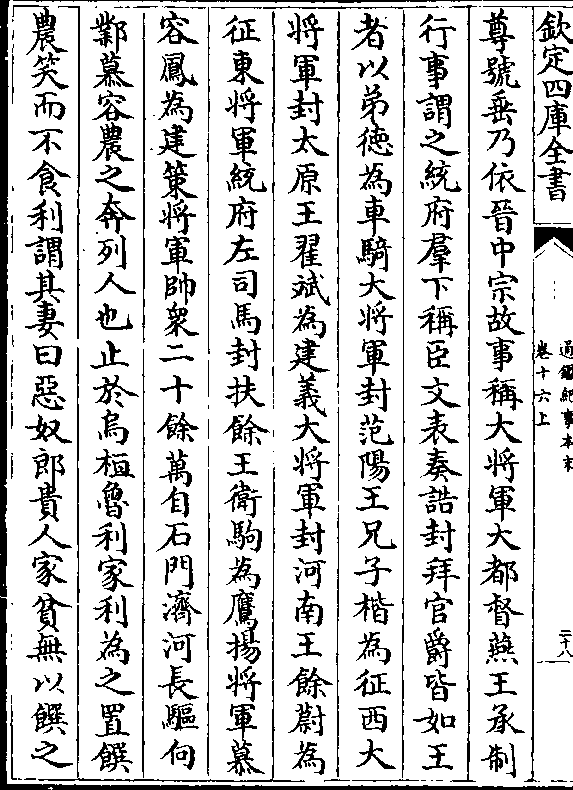 欽定四庫全書
通鑑紀事本末
卷十六上
二十八
尊號垂乃依晉中宗故事稱大將軍大都督燕王承制
行事謂之統府羣下稱臣文表奏誥封拜官爵皆如王
者以弟德為車騎大將軍封范陽王兄子楷為征西大
將軍封太原王翟斌為建義大將軍封河南王餘蔚為
征東將軍統府左司馬封扶餘王衛駒為鷹揚將軍慕
容鳳為建策將軍帥衆二十餘萬自石門濟河長驅向
鄴慕容農之奔列人也止於烏桓魯利家利為之置饌
農笑而不食利謂其妻曰惡奴郎貴人家貧無以饌之